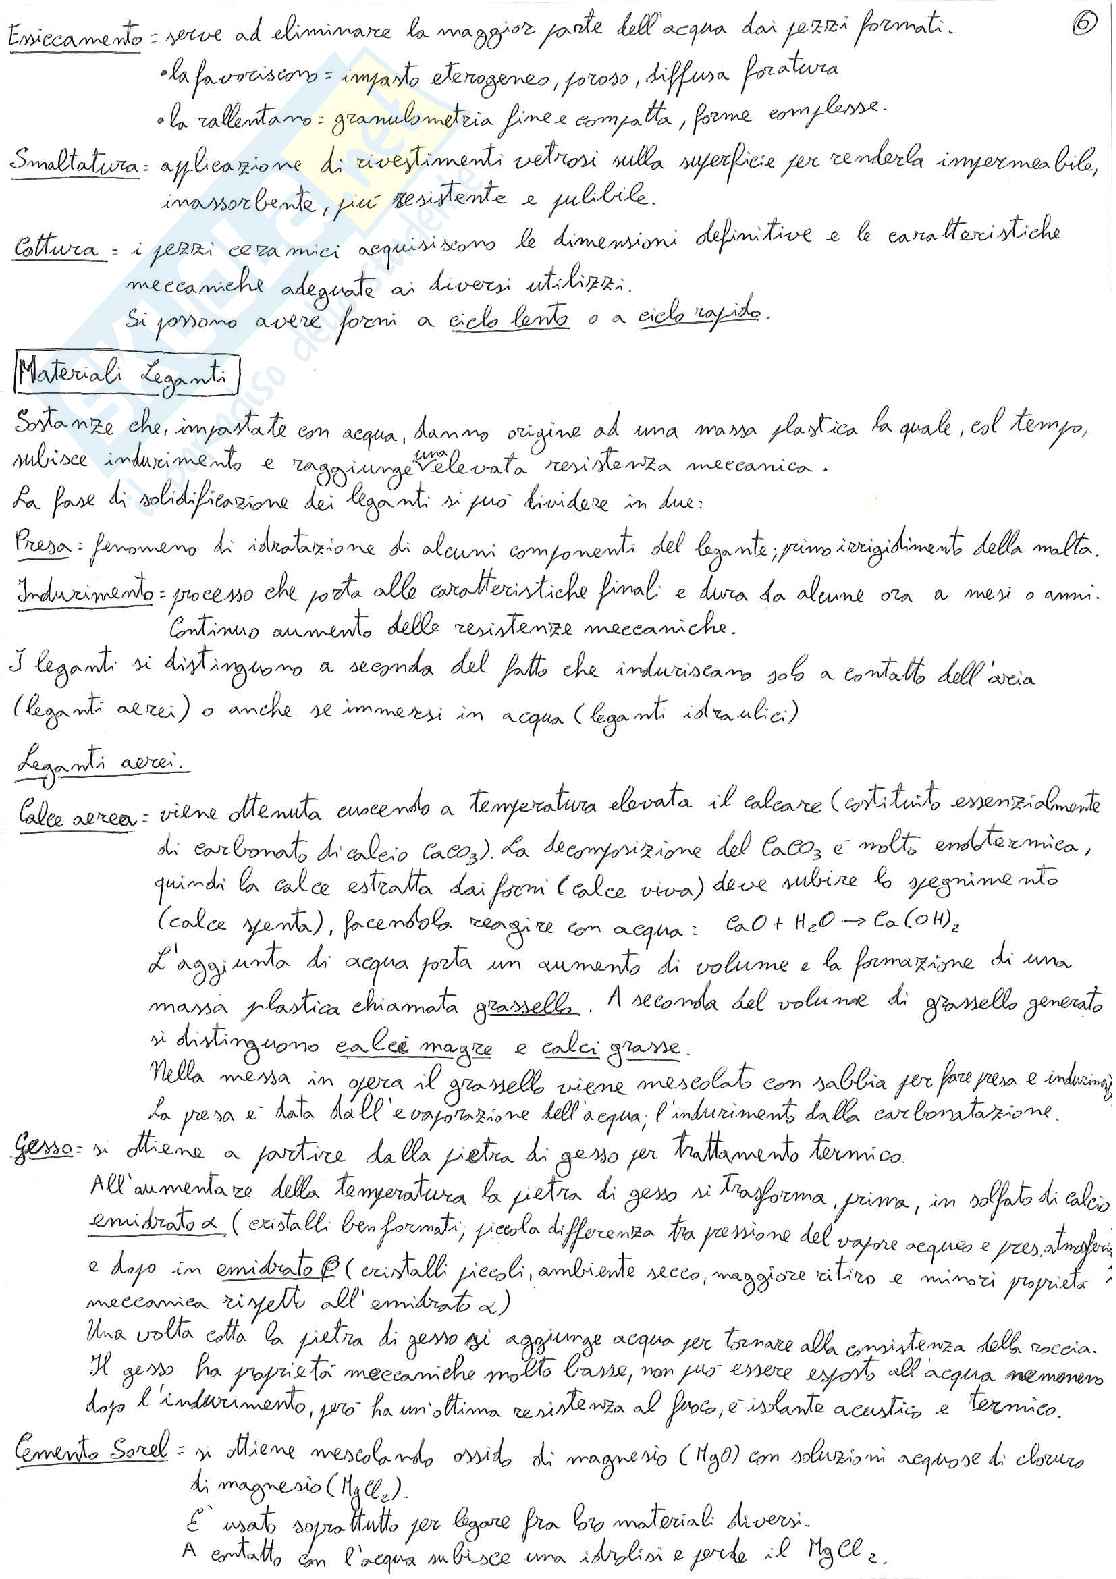 Essiccamento = serve ad eliminare la maggior parte dell'acqua dai pezzi formati. 6
• la favoriscono = impasto eterogeneo, poroso, diffusa foratura
• la rallentano = granulometria fine e compatta, forme complesse.
Smaltatura = applicazione di rivestimenti vetrosi sulla superficie per renderla impermeabile,
inassorbente, più resistente e pulibile.
Cottura = i pezzi ceramici acquisiscono le dimensioni definitive e le caratteristiche
meccaniche adeguate ai diversi utilizzi.
Si possono avere forni a ciclo lento o a ciclo rapido.
Materiali Leganti
Sostanze che, impastate con acqua, danno origine ad una massa plastica la quale, col tempo,
subisce indurimento e raggiunge una elevata resistenza meccanica.
La fase di solidificazione dei leganti si può dividere in due:
Presa = fenomeno di idratazione di alcuni componenti del legante; primo irrigidimento della malta.
Indurimento = processo che porta alle caratteristiche finali e dura da alcune ora a mesi o anni.
Continuo aumento delle resistenze meccaniche.
I leganti si distinguono a seconda del fatto che induriscano solo a contatto dell'aria
(leganti aerei) o anche se immersi in acqua (leganti idraulici)
Leganti aerei.
Calce aerea = viene ottenuta cuocendo a temperatura elevata il calcare (costituito essenzialmente
di carbonato di calcio CaCO3). La decomposizione del CaCO3 è molto endotermica,
quindi la calce estratta dai forni (calce viva) deve subire lo spegnimento
(calce spenta), facendola reagire con acqua: CaO + H2O → Ca(OH)2
L'aggiunta di acqua porta un aumento di volume e la formazione di una
massa plastica chiamata grassello. A seconda del volume di grassello generato
si distinguono calci magre e calci grasse.
Nella messa in opera il grassello viene mescolato con sabbia per fare presa e
La presa è data dall'evaporazione dell'acqua; l'indurimento dalla carbonatazione.
Gesso = si ottiene a partire dalla pietra di gesso per trattamento termico.
All'aumentare della temperatura la pietra di gesso si trasforma, prima, in solfato di calcio
emidrato α (cristalli ben formati, piccola differenza tra pressione del vapore acqueo e pres.
e dopo in emidrato β (cristalli piccoli, ambiente secco, maggiore ritiro e minori proprietà
meccanica rispetto all'emidrato α)
Una volta cotta la pietra di gesso si aggiunge acqua per tornare alla consistenza della roccia.
Il gesso ha proprietà meccaniche molto basse, non può essere esposto all'acqua nemmeno
dopo l'indurimento, però ha un'ottima resistenza al fuoco, è isolante acustico e termico.
Cemento Sorel = si ottiene mescolando ossido di magnesio (MgO) con soluzioni acquose di cloruro
di magnesio (MgCl2).
E' usato soprattutto per legare fra loro materiali diversi.
A contatto con l'acqua subisce una idrolisi e perde il MgCl2.